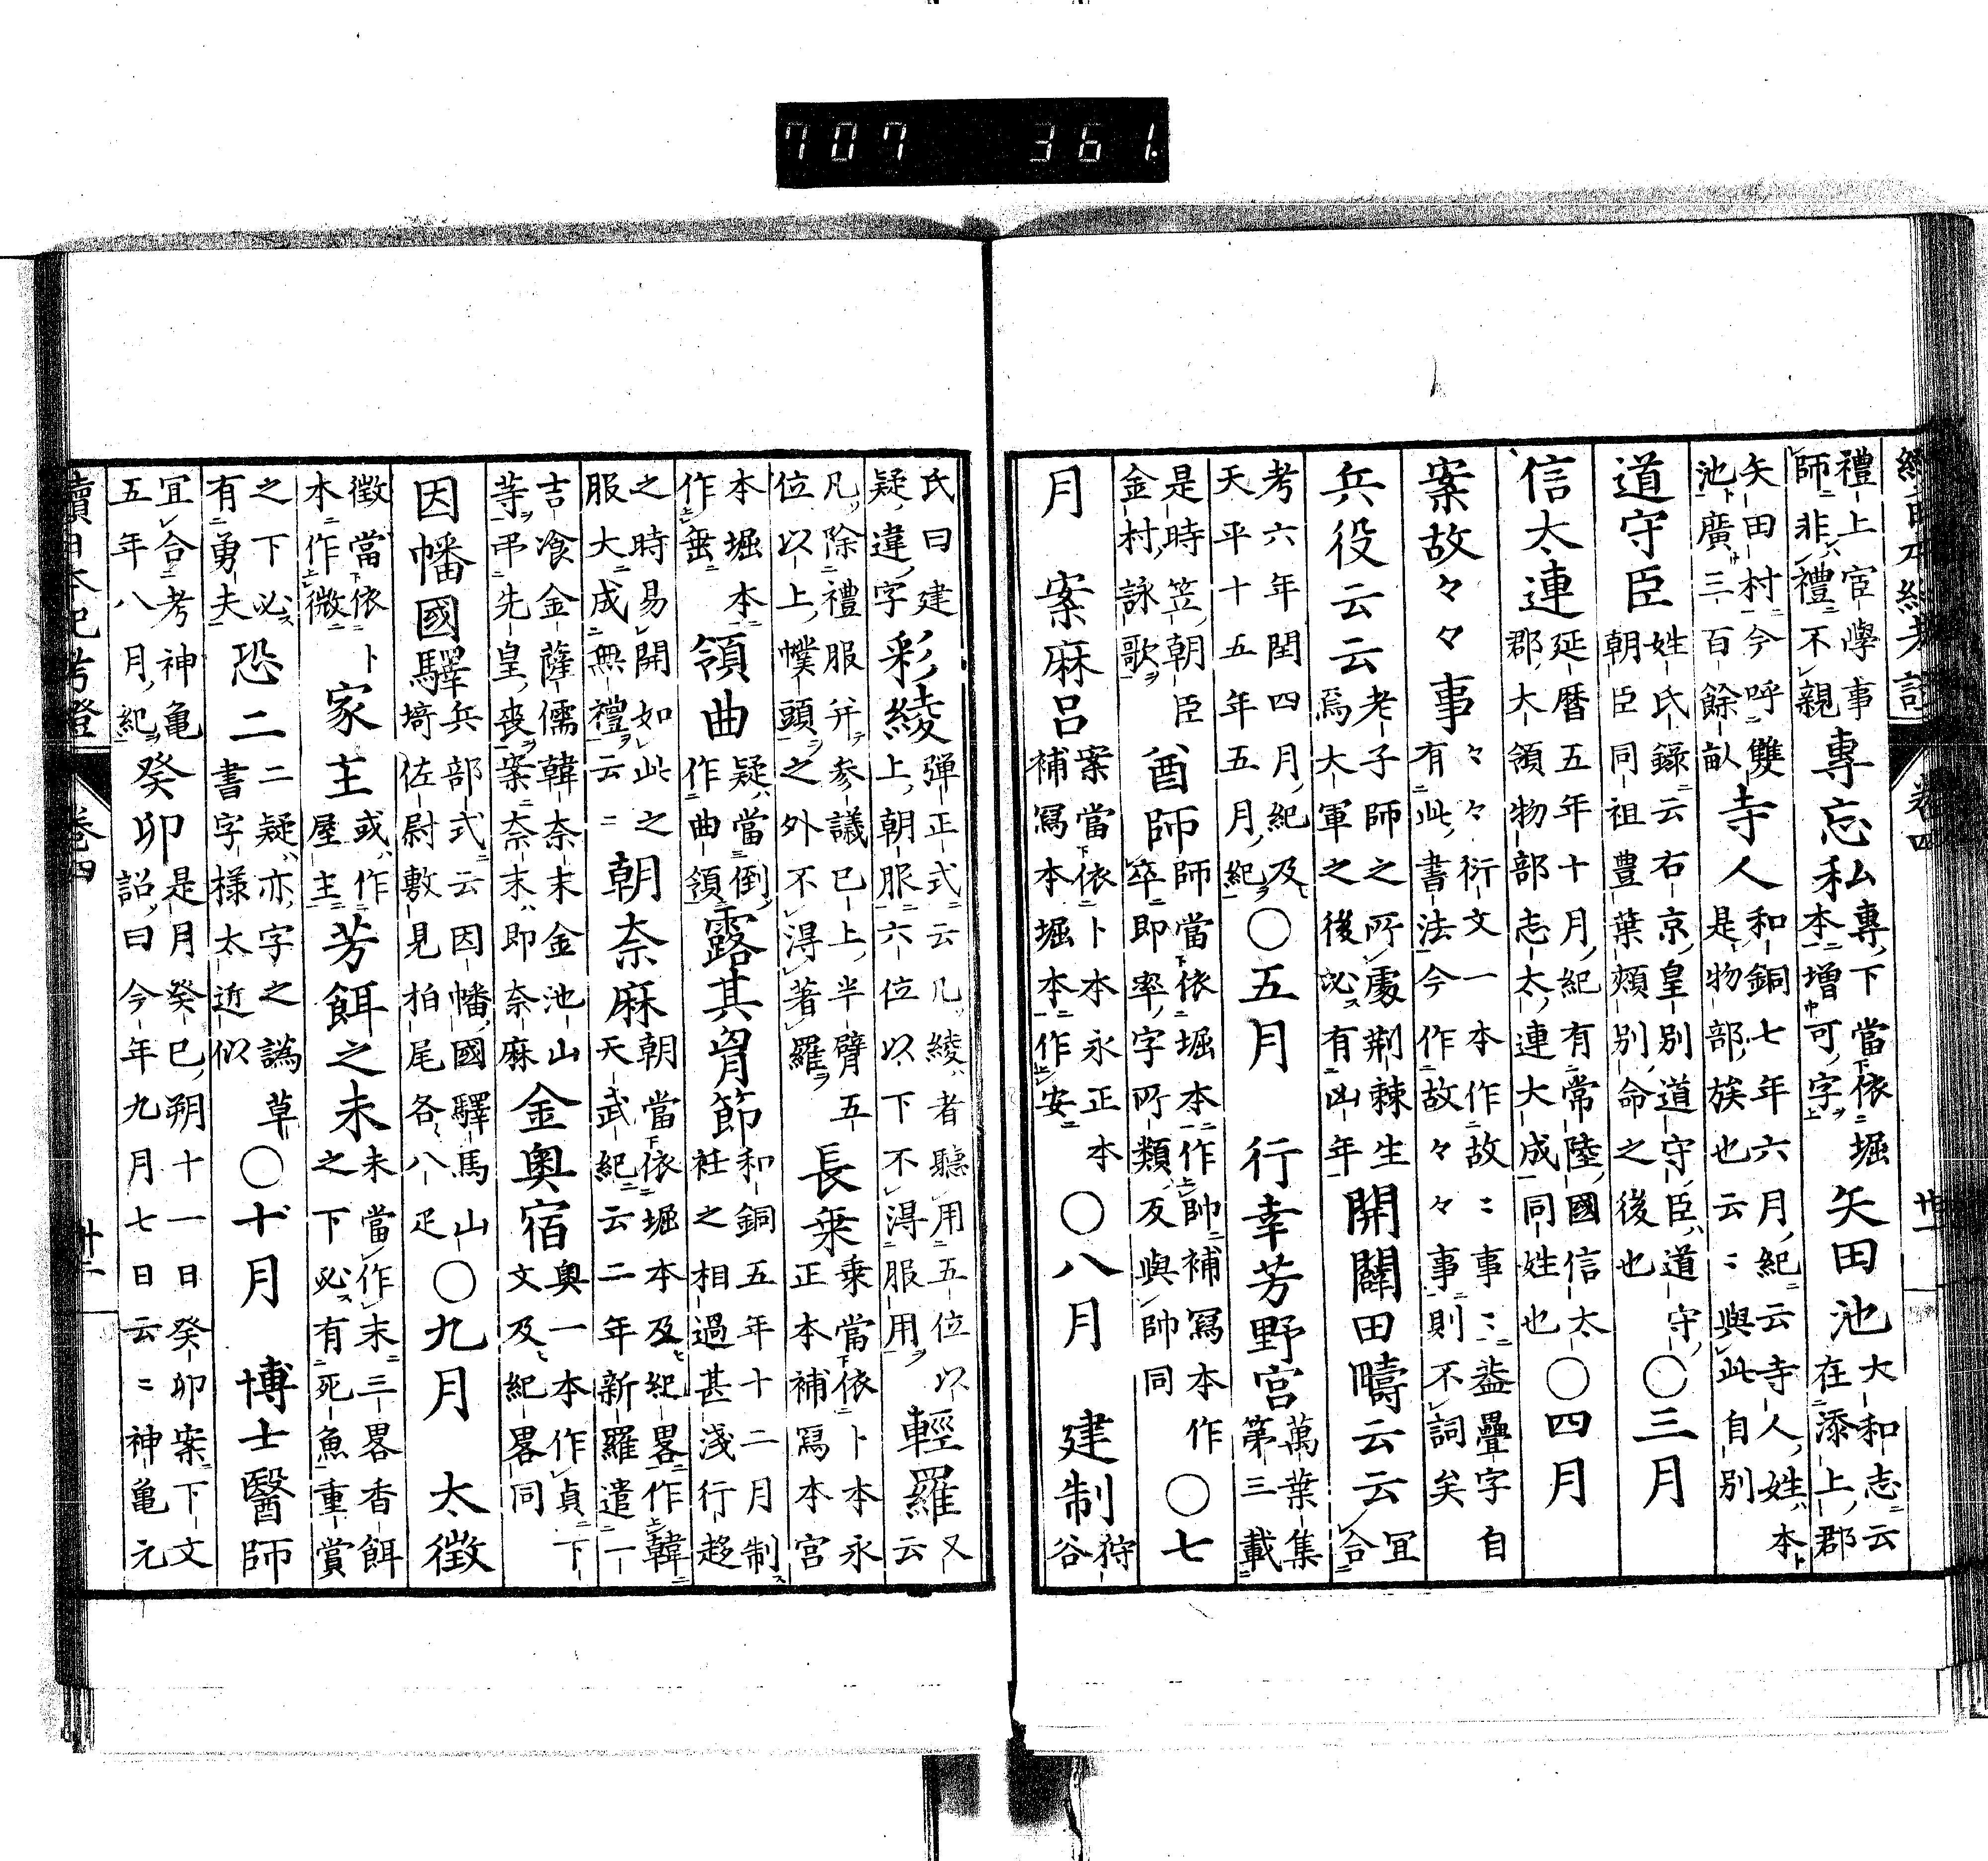 707 361.
續日本紀考證 卷四 廿一
禮上宦學事師非禮不親 專忘私 專下當依堀本增可字 矢田池 大和志云在添上郡
矢田村今呼雙池廣三百餘畝 寺人 和銅七年六月紀云寺人姓本是物部族也云〻與此自別
道守臣 姓氏錄云右京皇別道守臣道守朝臣同祖豊葉頰別命之後也 〇三月
信太連 延曆五年十月紀有常陸國信太郡大領物部志太連大成同姓也 〇四月
案故々々事 々々衍文一本作故〻事〻蓋疊字自有此書法今作故々々事則不詞矣
兵役云云 老子師之所處荆棘生焉大軍之後必有凶年 開闢田疇云云 宜合
考六年閏四月紀及天平十五年五月紀 〇五月 行幸芳野宮 萬葉集第三載
是時笠朝臣金村詠歌 酋師 師當依堀本作帥補寫本作卒即率字所類及與帥同 〇七
月 案麻呂 案當依卜本永正本補寫本堀本作安 〇八月 建制 狩谷
氏曰建疑違字 彩綾 彈正式云凡綾者聽用五位以上朝服六位以下不得服用 輕羅 又云
凡除禮服幷參議已上半臂五位以上幞頭之外不得著羅 長乗 乗當依卜本永正本補寫本宮
本堀本作垂 領曲 疑當倒作曲領 露其胷節 和銅五年十二月制衽之相過甚淺行趍
之時易開如此之服大成無禮云〻 朝奈麻 朝當依堀本及紀畧作韓天武紀云二年新羅遣一
吉飡金薩儒韓奈末金池山等弔先皇喪案奈末即奈麻 金奥宿 奥一本作貞下文及紀畧同
因幡國驛 兵部式云因幡國驛馬山埼佐尉敷見柏尾各八疋 〇九月 太徵
徵當依卜本作微 家主 或作屋主 芳餌之未 未當作末三畧香餌之下必有死魚重賞
之下必有勇夫 恐二 二疑亦字之譌草書字様太近似 〇十月 博士醫師
宜合考神亀五年八月紀 癸卯 是月癸巳朔十一日癸卯案下文詔曰今年九月七日云〻神亀元
續日本紀考證 卷四 廿二